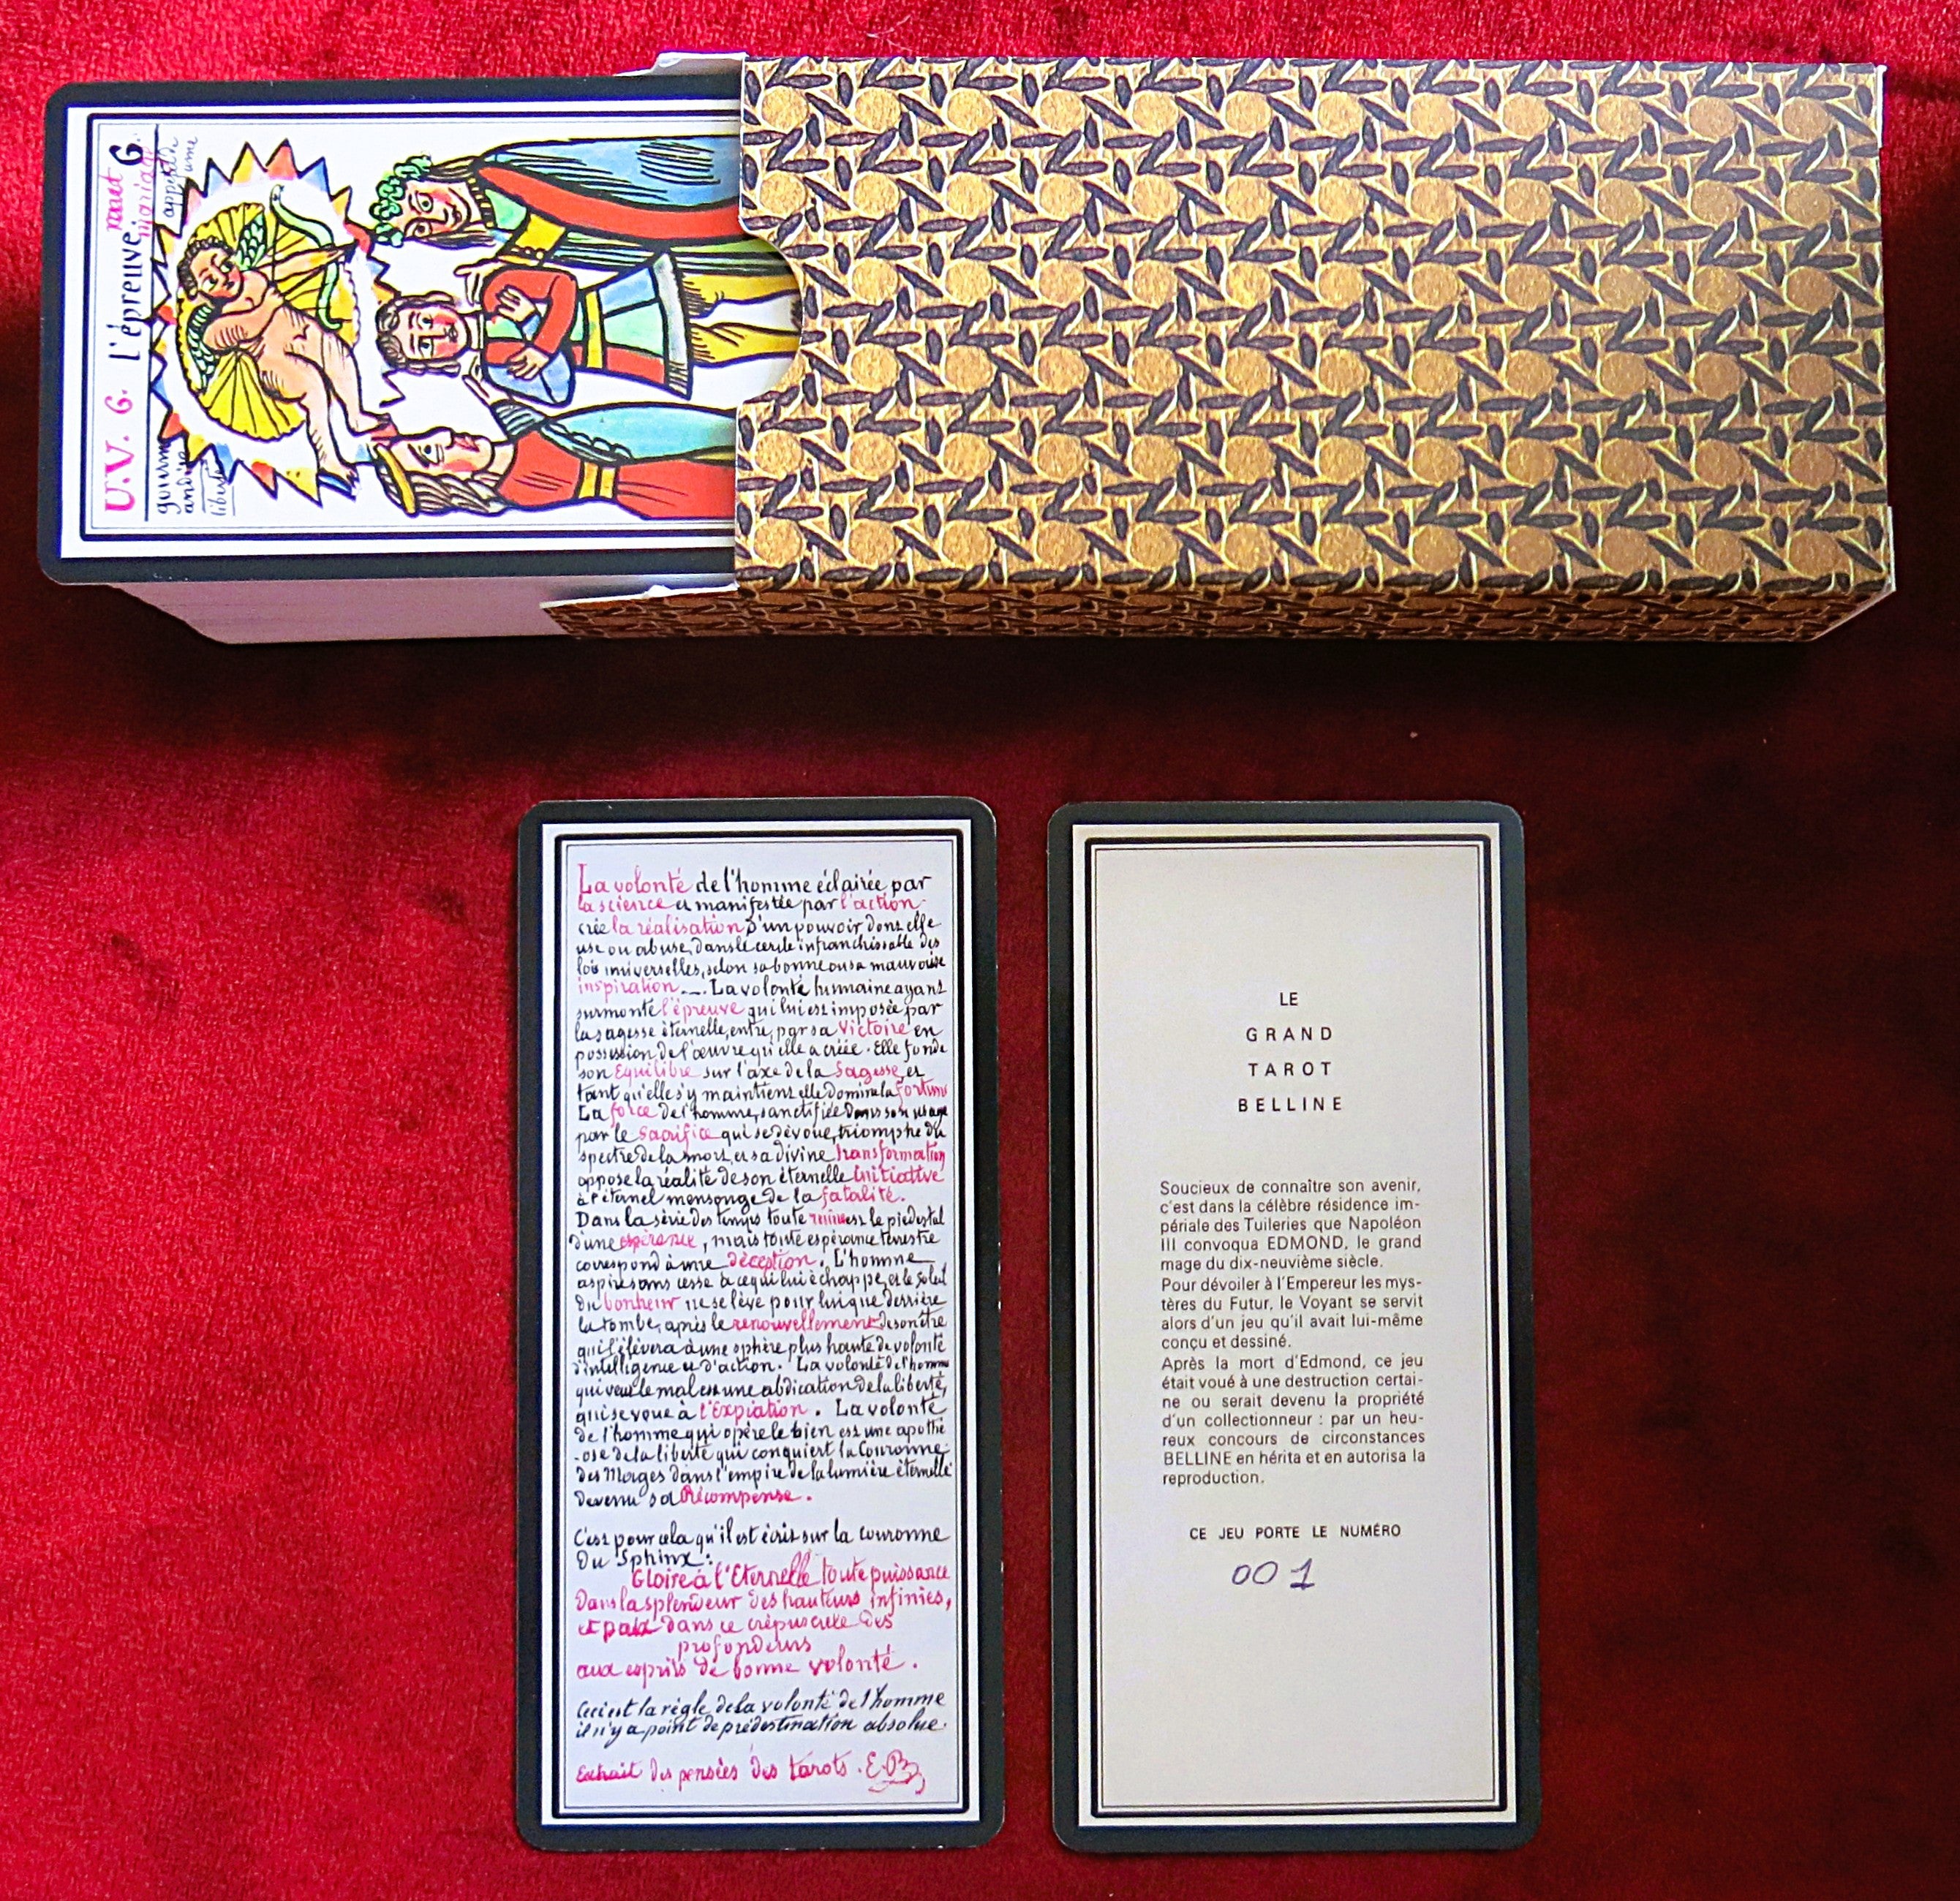 U.V. 6. l'épreuve. vaut 6.
mariage
La volonté de l'homme éclairée par
la science et manifestée par l'action
crée la réalisation d'un pouvoir dont elle
use ou abuse, dans le cercle infranchissable des
lois universelles, selon sa bonne ou sa mauvaise
inspiration __. La volonté humaine ayant
surmonté l'épreuve qui lui est imposée par
la sagesse èternelle, entre, par sa Victoire en
possession de l'œuvre qu'elle a créée. Elle fonde
son Equilibre sur l'axe de la Sagesse, et
tant qu'elle s'y maintient elle domine la fortune
La force de l'homme, sanctifiée dans son usage
par le Sacrifice qui se dévoue, triomphe du
spectre de la mort, et sa divine transformation
oppose la réalité de son éternelle initiative
à l'éternel mensonge de la fatalité.
Dans la série des temps toute ruine est le piédestal
d'une espérance, mais toute espérance terrestre
correspond à une déception. L'homme
aspire sans cesse à ce qui lui échappe, et le soleil
du bonheur ne se lève pour lui que derrière
la tombe, après le renouvellement de son être
qui l'élèvera à une sphère plus haute de volonté
d'intelligence et d'action. La volonté de l'homme
qui veut le mal est une abdication de la liberté,
qui se voue à l'Expiation. La volonté
de l'homme qui opère le bien est une apothé
-ose de la liberté qui conquiert la Couronne
des Mages dans l'empire de la lumière éternelle
devenu sa Récompense.
C'est pour cela qu'il est écrit sur la couronne
Du Sphinx:
Gloire à l'Eternelle toute puissance
Dans la splendeur des hauteurs infinies,
et paix dans ce crépuscule des
profondeurs
aux esprits de bonne volonté.
Ceci est la règle de la volonté de l'homme
il n'y a point de prédestination absolue.
Extrait des pensées des tarots. E.B
LE
GRAND
TAROT
BELLINE
Soucieux de connaître son avenir,
c'est dans la célèbre résidence im-
périale des Tuileries que Napoléon
III convoqua EDMOND, le grand
mage du dix-neuvième siècle.
Pour dévoiler à l'Empereur les mys-
tères du Futur, le Voyant se servit
alors d'un jeu qu'il avait lui-même
conçu et dessiné.
Après la mort d'Edmond, ce jeu
était voué à une destruction certai-
ne ou serait devenu la propriété
d'un collectionneur : par un heu-
reux concours de circonstances
BELLINE en hérita et en autorisa la
reproduction.
CE JEU PORTE LE NUMÉRO
001